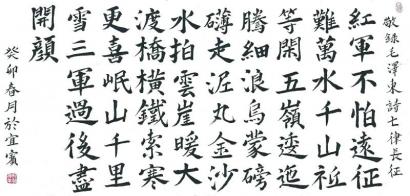 敬錄毛澤東詩七律長征
紅軍不怕遠征
難萬水千山祇
等閑五嶺逶迤
騰細浪烏蒙磅
礴走泥丸金沙
水拍雲崖暖大
渡橋橫鐵索寒
更喜岷山千里
雪三軍過後盡
開顏
癸卯春月於宜賓